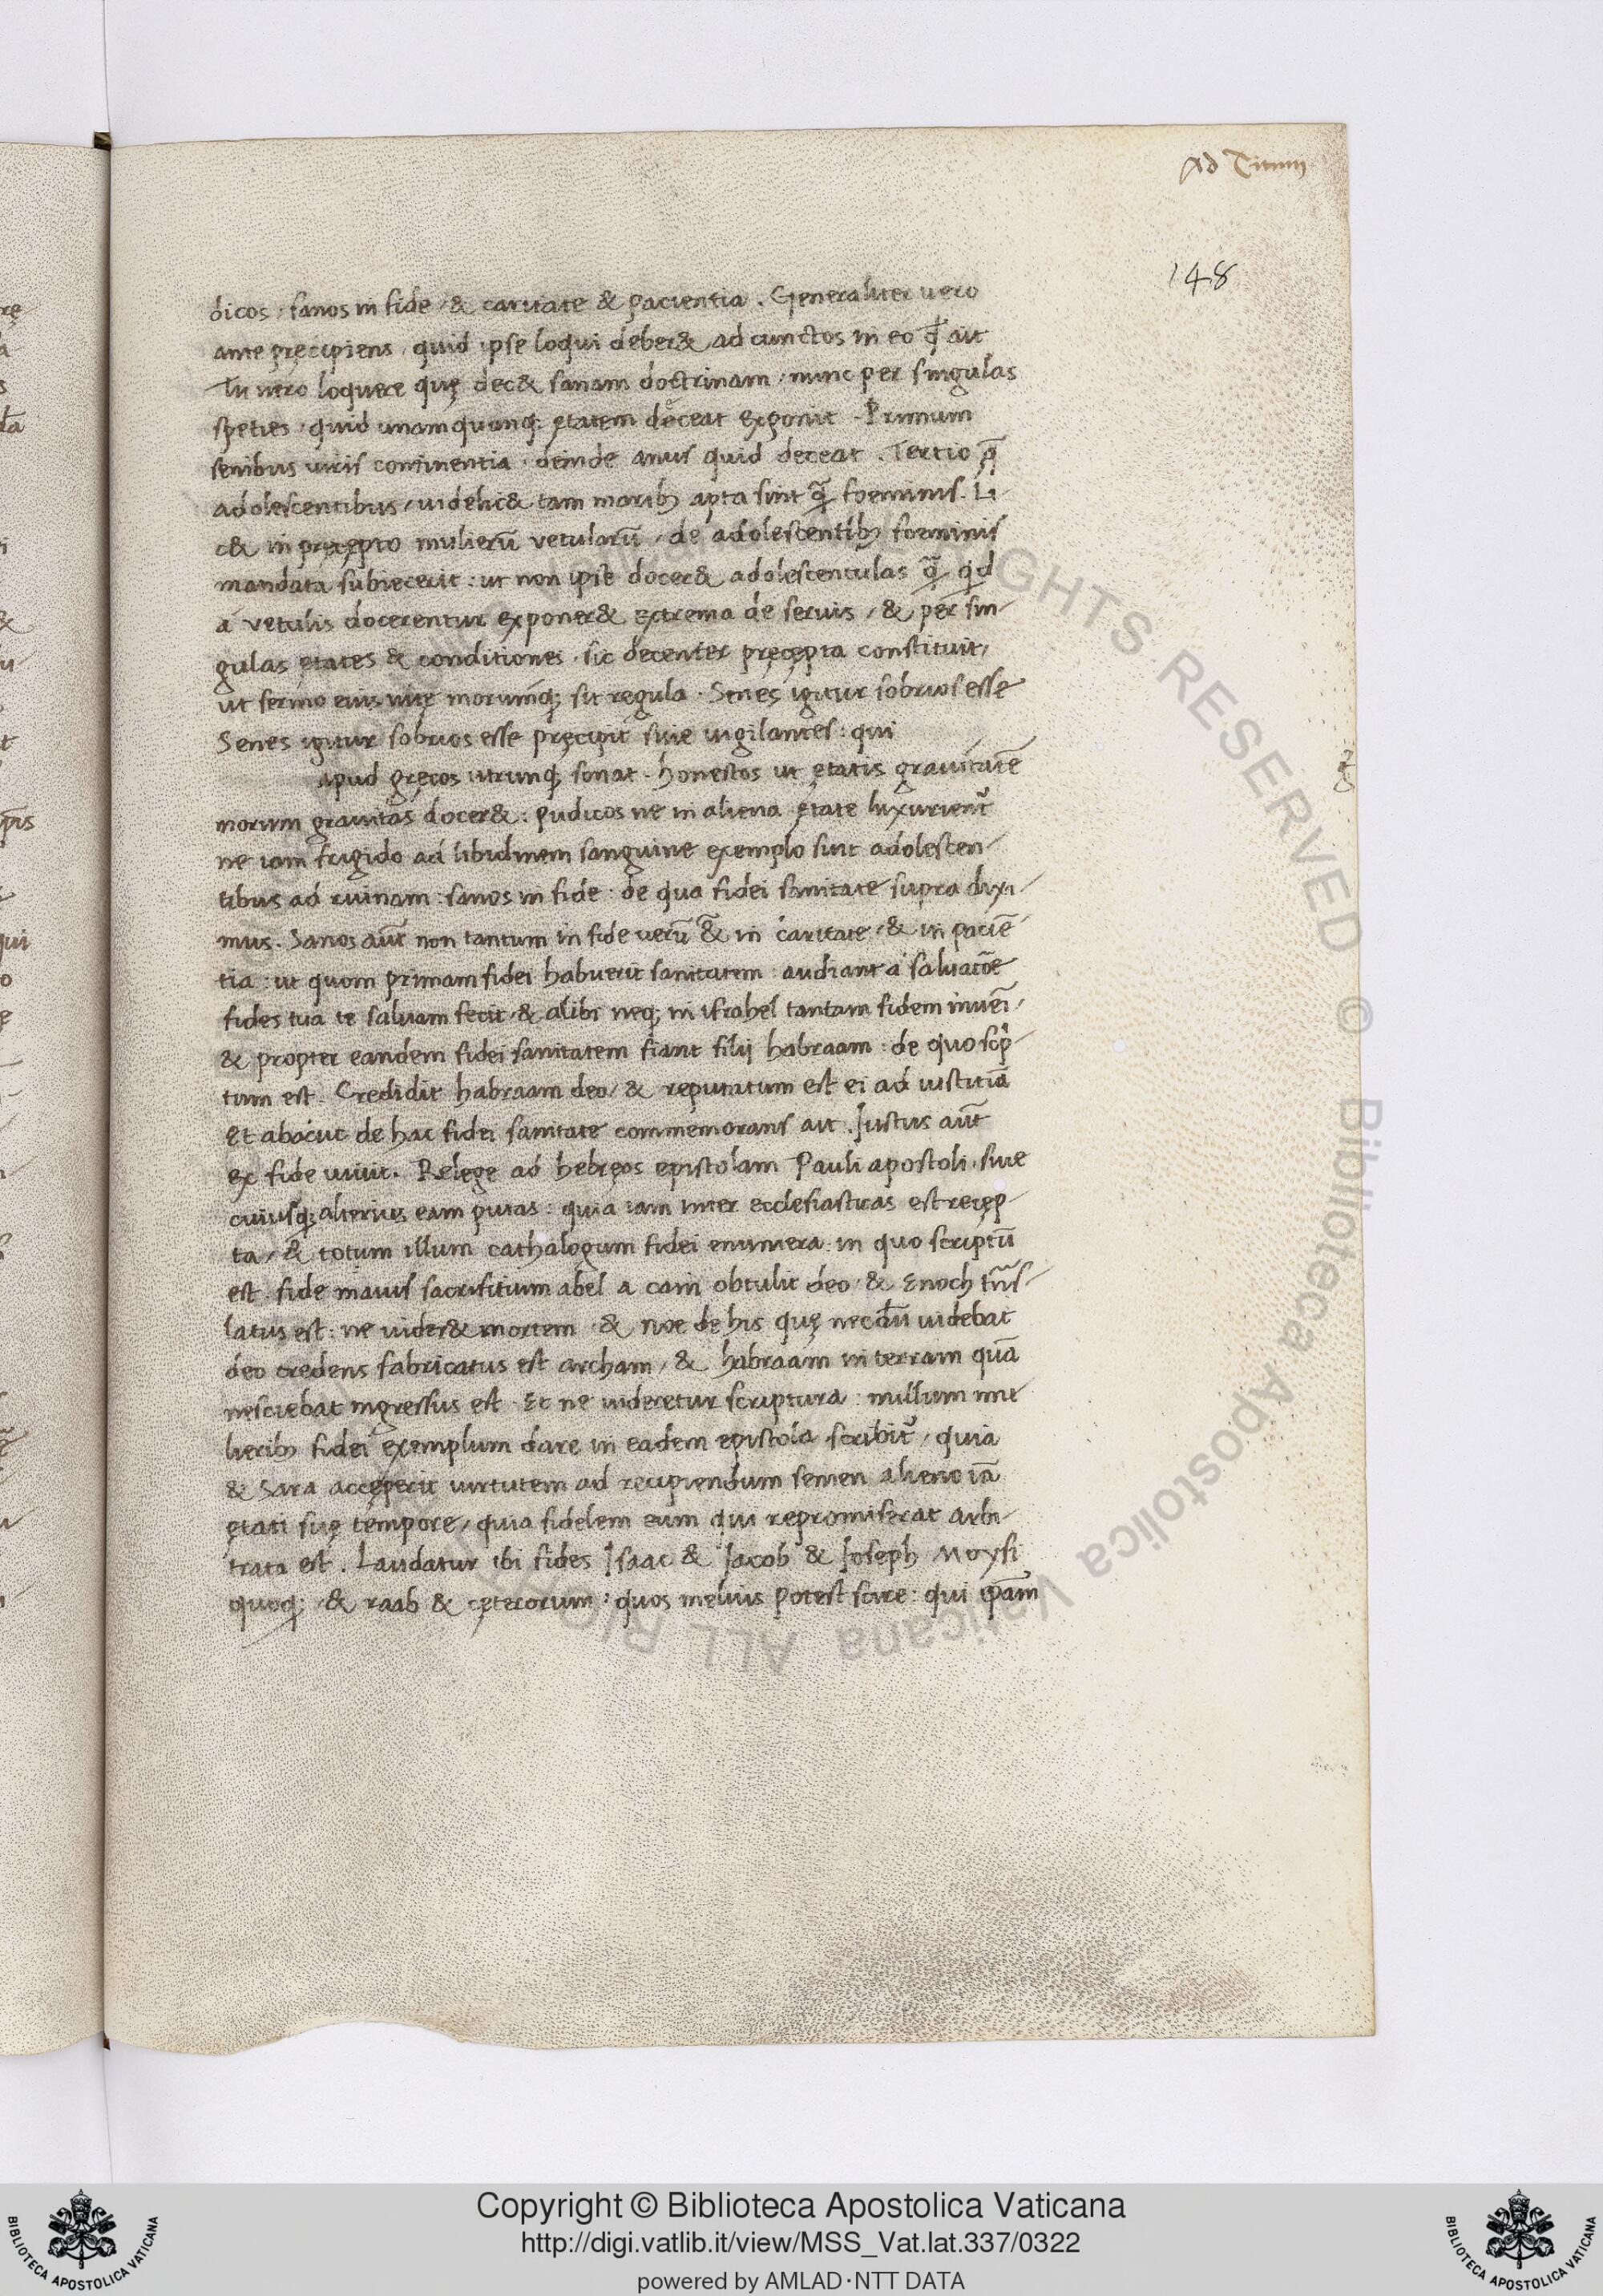 Ad Titum
148
dicos, sanos in fide, & caritate & pacientia. Generaliter vero
ante pręcipiens, quid ipse loqui deber& ad cunctos in eo qđ ait
Tu vero loquere quę dec& sanam doctrinam, nunc per singulas
speties, quid unamquanq; ętatem doceat exponit. Primum
senibus uiris continentia, deinde anus quid deceat. Tertio q̄
adolescentibus, uidelic& tam marib; apta sint q̄ foeminis. Li-
c& in pręcępto mulierū vetularū, de adolescentib; foeminis
mandata subiecerit: ut non ipse docer& adolescentulas q̄ qd
a vetulis docerentur exponer& extrema de seruis, & per sin-
gulas ętates & conditiones, sic decenter pręcępta constituit,
ut sermo eius uitę morumq; sit regula. Senes igitur sobrios esse
Senes igitur sobrios esse pręcipit siue uigilantes: qui
apud gręcos utrunq; sonat. honestos ut ętatis grauitatē
morum grauitas docer&: pudicos ne in aliena ętate luxurient᷑
ne iam frigido ad libidinem sanguine exemplo sint adolescen-
tibus ad ruinam: sanos in fide: de qua fidei sanitate supra dixi-
mus. Sanos aūt non tantum in fide verū & in caritate, & in paciē-
tia: ut quom primam fidei habuerit sanitatem: audiant a saluatōe
fides tua te saluam fecit, & alibi neq; in israhel tantam fidem inueni,
& propter eandem fidei sanitatem fiant filij habraam: de quo scp̄-
tum est. Credidit habraam deo, & reputatum est ei ad iustitiā
Et abacuc de hac fidei sanitate commemorans ait. Justus aūt
ex fide uiuit. Relege ad hebręos epistolam Pauli apostoli, siue
cuiusq; alterius eam putas: quia iam inter ecclesiasticas est recęp-
ta, & totum illum cathalogum fidei enumera: in quo scriptū
est. fide maius sacrifitium abel a cain obtulit deo, & Enoch trn̄s-
latus est: ne uider& mortem, & noe de his quę necdū uidebat
deo credens fabricatus est archam, & habraam in terram quā
nesciebat ingressus est. Et ne uideretur scriptura: nullum mu-
lierib; fidei exemplum dare in eadem epistola scribit᷑, quia
& Sara accęperit uirtutem ad recipiendum semen alieno iā
ętati suę tempore, quia fidelem eum qui repromiserat arbi-
trata est. Laudatur ibi fides Jsaac & Jacob & Joseph Moysi
quoq; & raab & cęterorum: quos melius potest scire: qui ip̄am
© Biblioteca Apostolica Vaticana ALL RIGHTS RESERVED
Copyright © Biblioteca Apostolica Vaticana
http://digi.vatlib.it/view/MSS_Vat.lat.337/0322
powered by AMLAD·NTT DATA
BIBLIOTECA APOSTOLICA VATICANA
BIBLIOTECA APOSTOLICA VATICANA